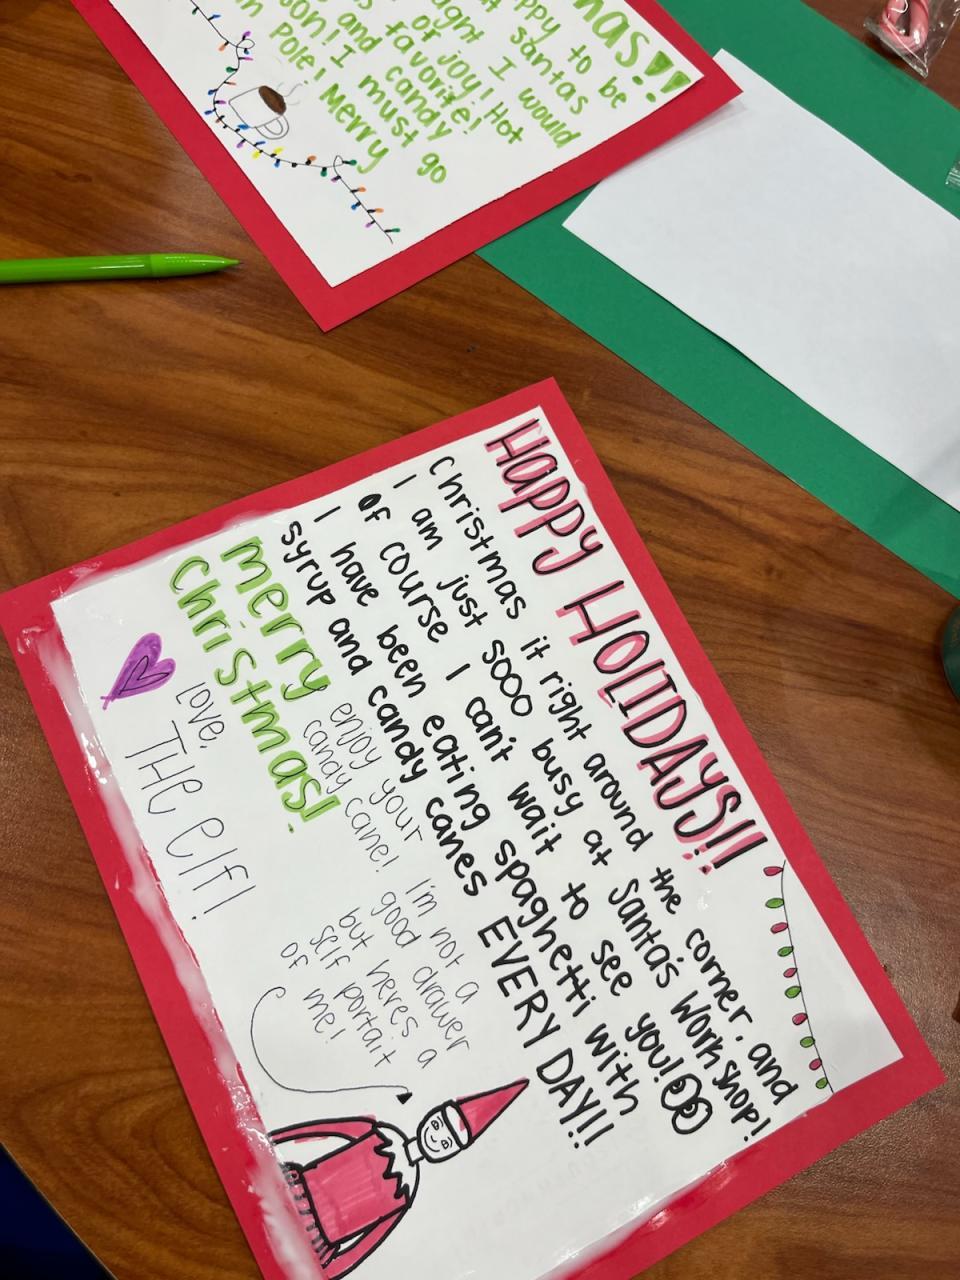 mas!!
ppy to be
t santas
ught I would
of joy! Hot
s favorite!
s and candy
son! I must go
n Pole! Merry
HAPPY HOLIDAYS!!
Christmas it right around the corner, and
I am just sooo busy at Santa's Workshop!
Of course I can't wait to see you!
I have been eating spaghetti with
syrup and candy canes EVERY DAY!!
merry
Christmas!
enjoy your
candy cane!
Love,
THE elf!
I'm not a
good drawer
but heres a
self portait
of me!